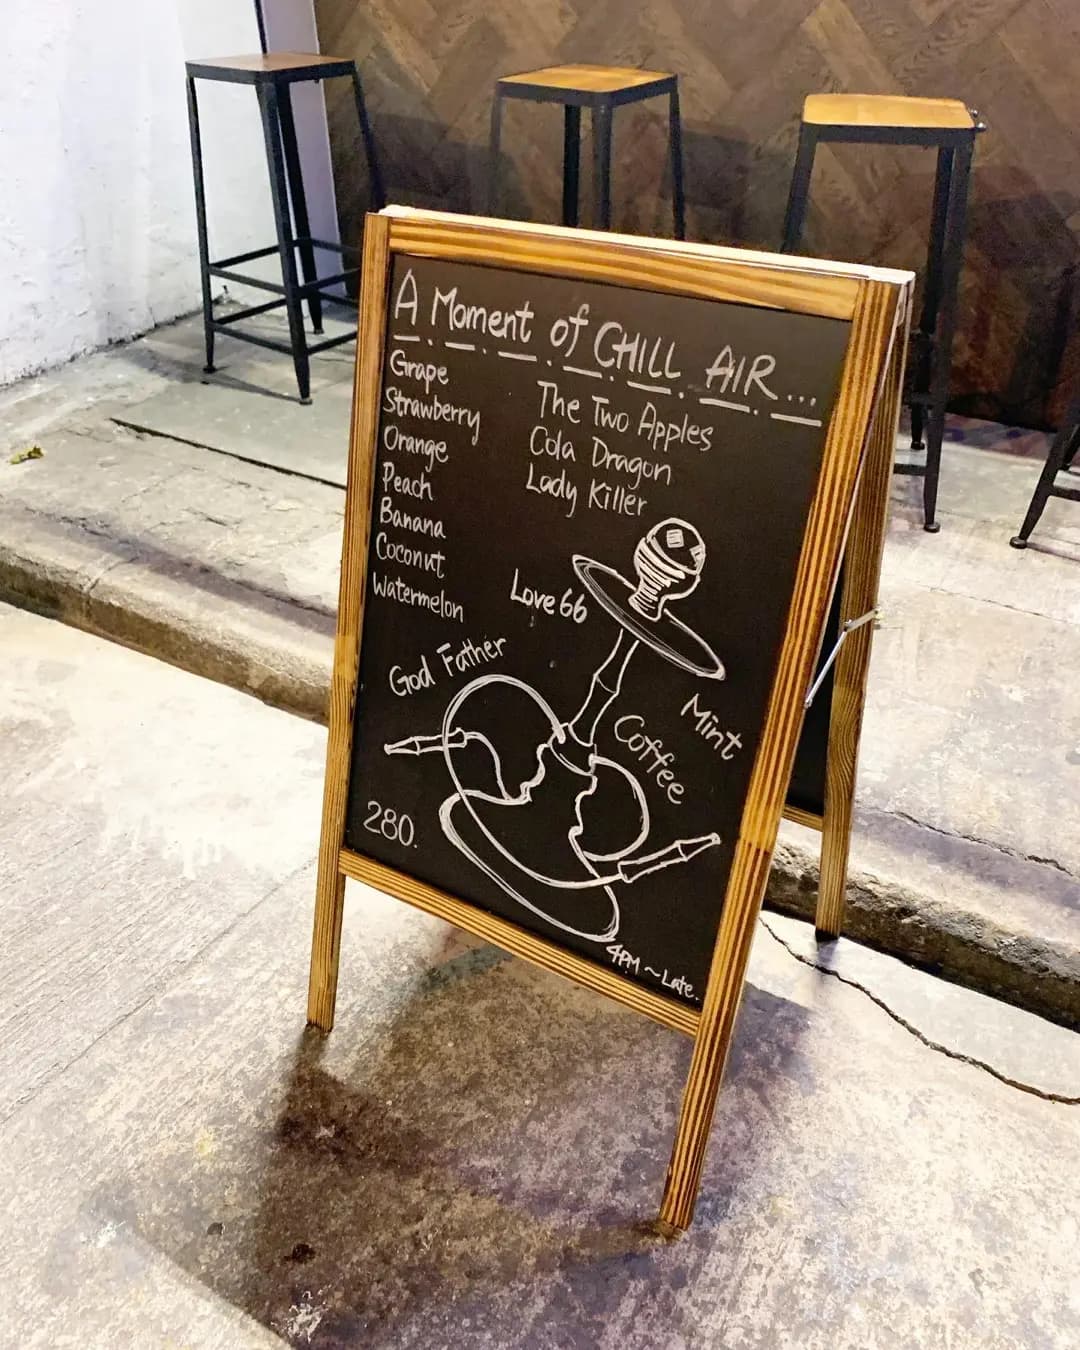 A Moment of CHILL AIR...
Grape
Strawberry
Orange
Peach
Banana
Coconut
Watermelon
The Two Apples
Cola Dragon
Lady Killer
Love 66
God Father
Mint
Coffee
280.
4PM ~ Late.